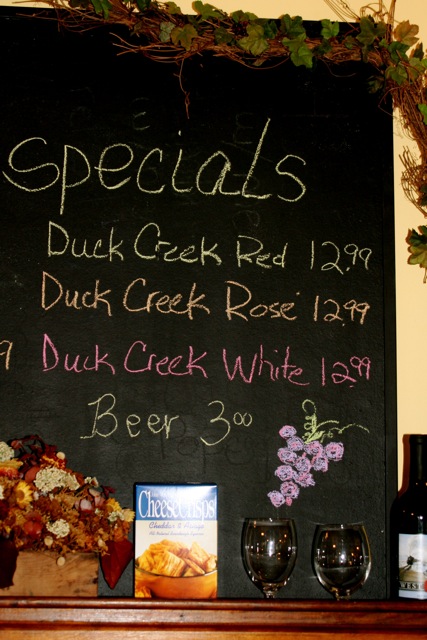 Specials
Duck Creek Red 12.99
Duck Creek Rose 12.99
9
Duck Creek White 12.99
Beer 3.00
CheeseCrisps
Cheddar &
WEST